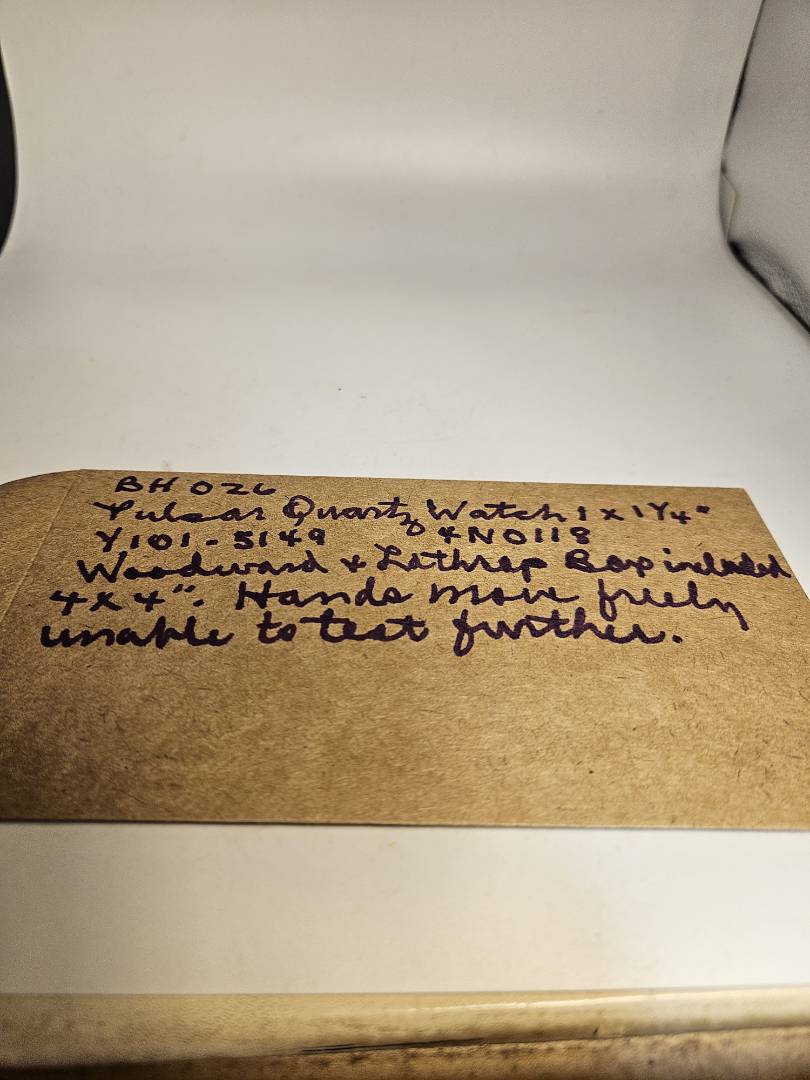 BH 026
Pulsar Quartz Watch 1 x 1 1/4"
Y101-5149 4N0118
Woodward & Lothrop Box included
4 x 4". Hands move freely
unable to test further.